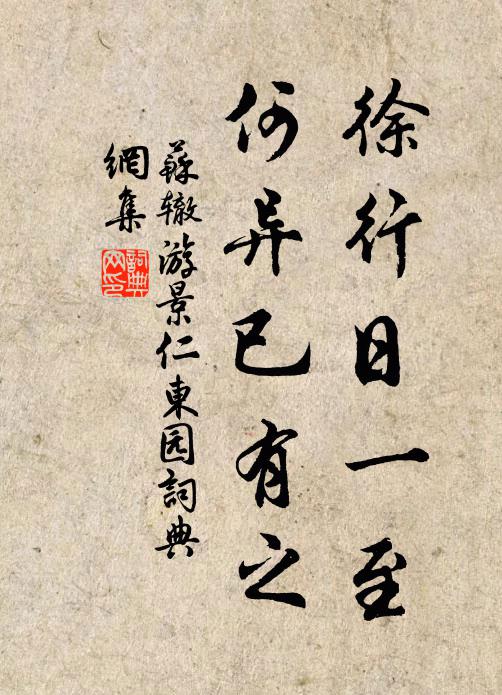 徐行日一至
何异已有之
蘇辙游景仁東园詞典
網集
詞典网印